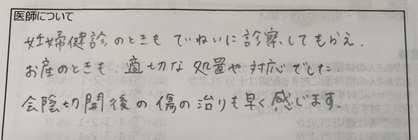 医師について
妊婦健診のときも ていねいに診察してもらえ、
お産のときも、適切な処置や対応でした。
会陰切開後の傷の治りも早く感じます。